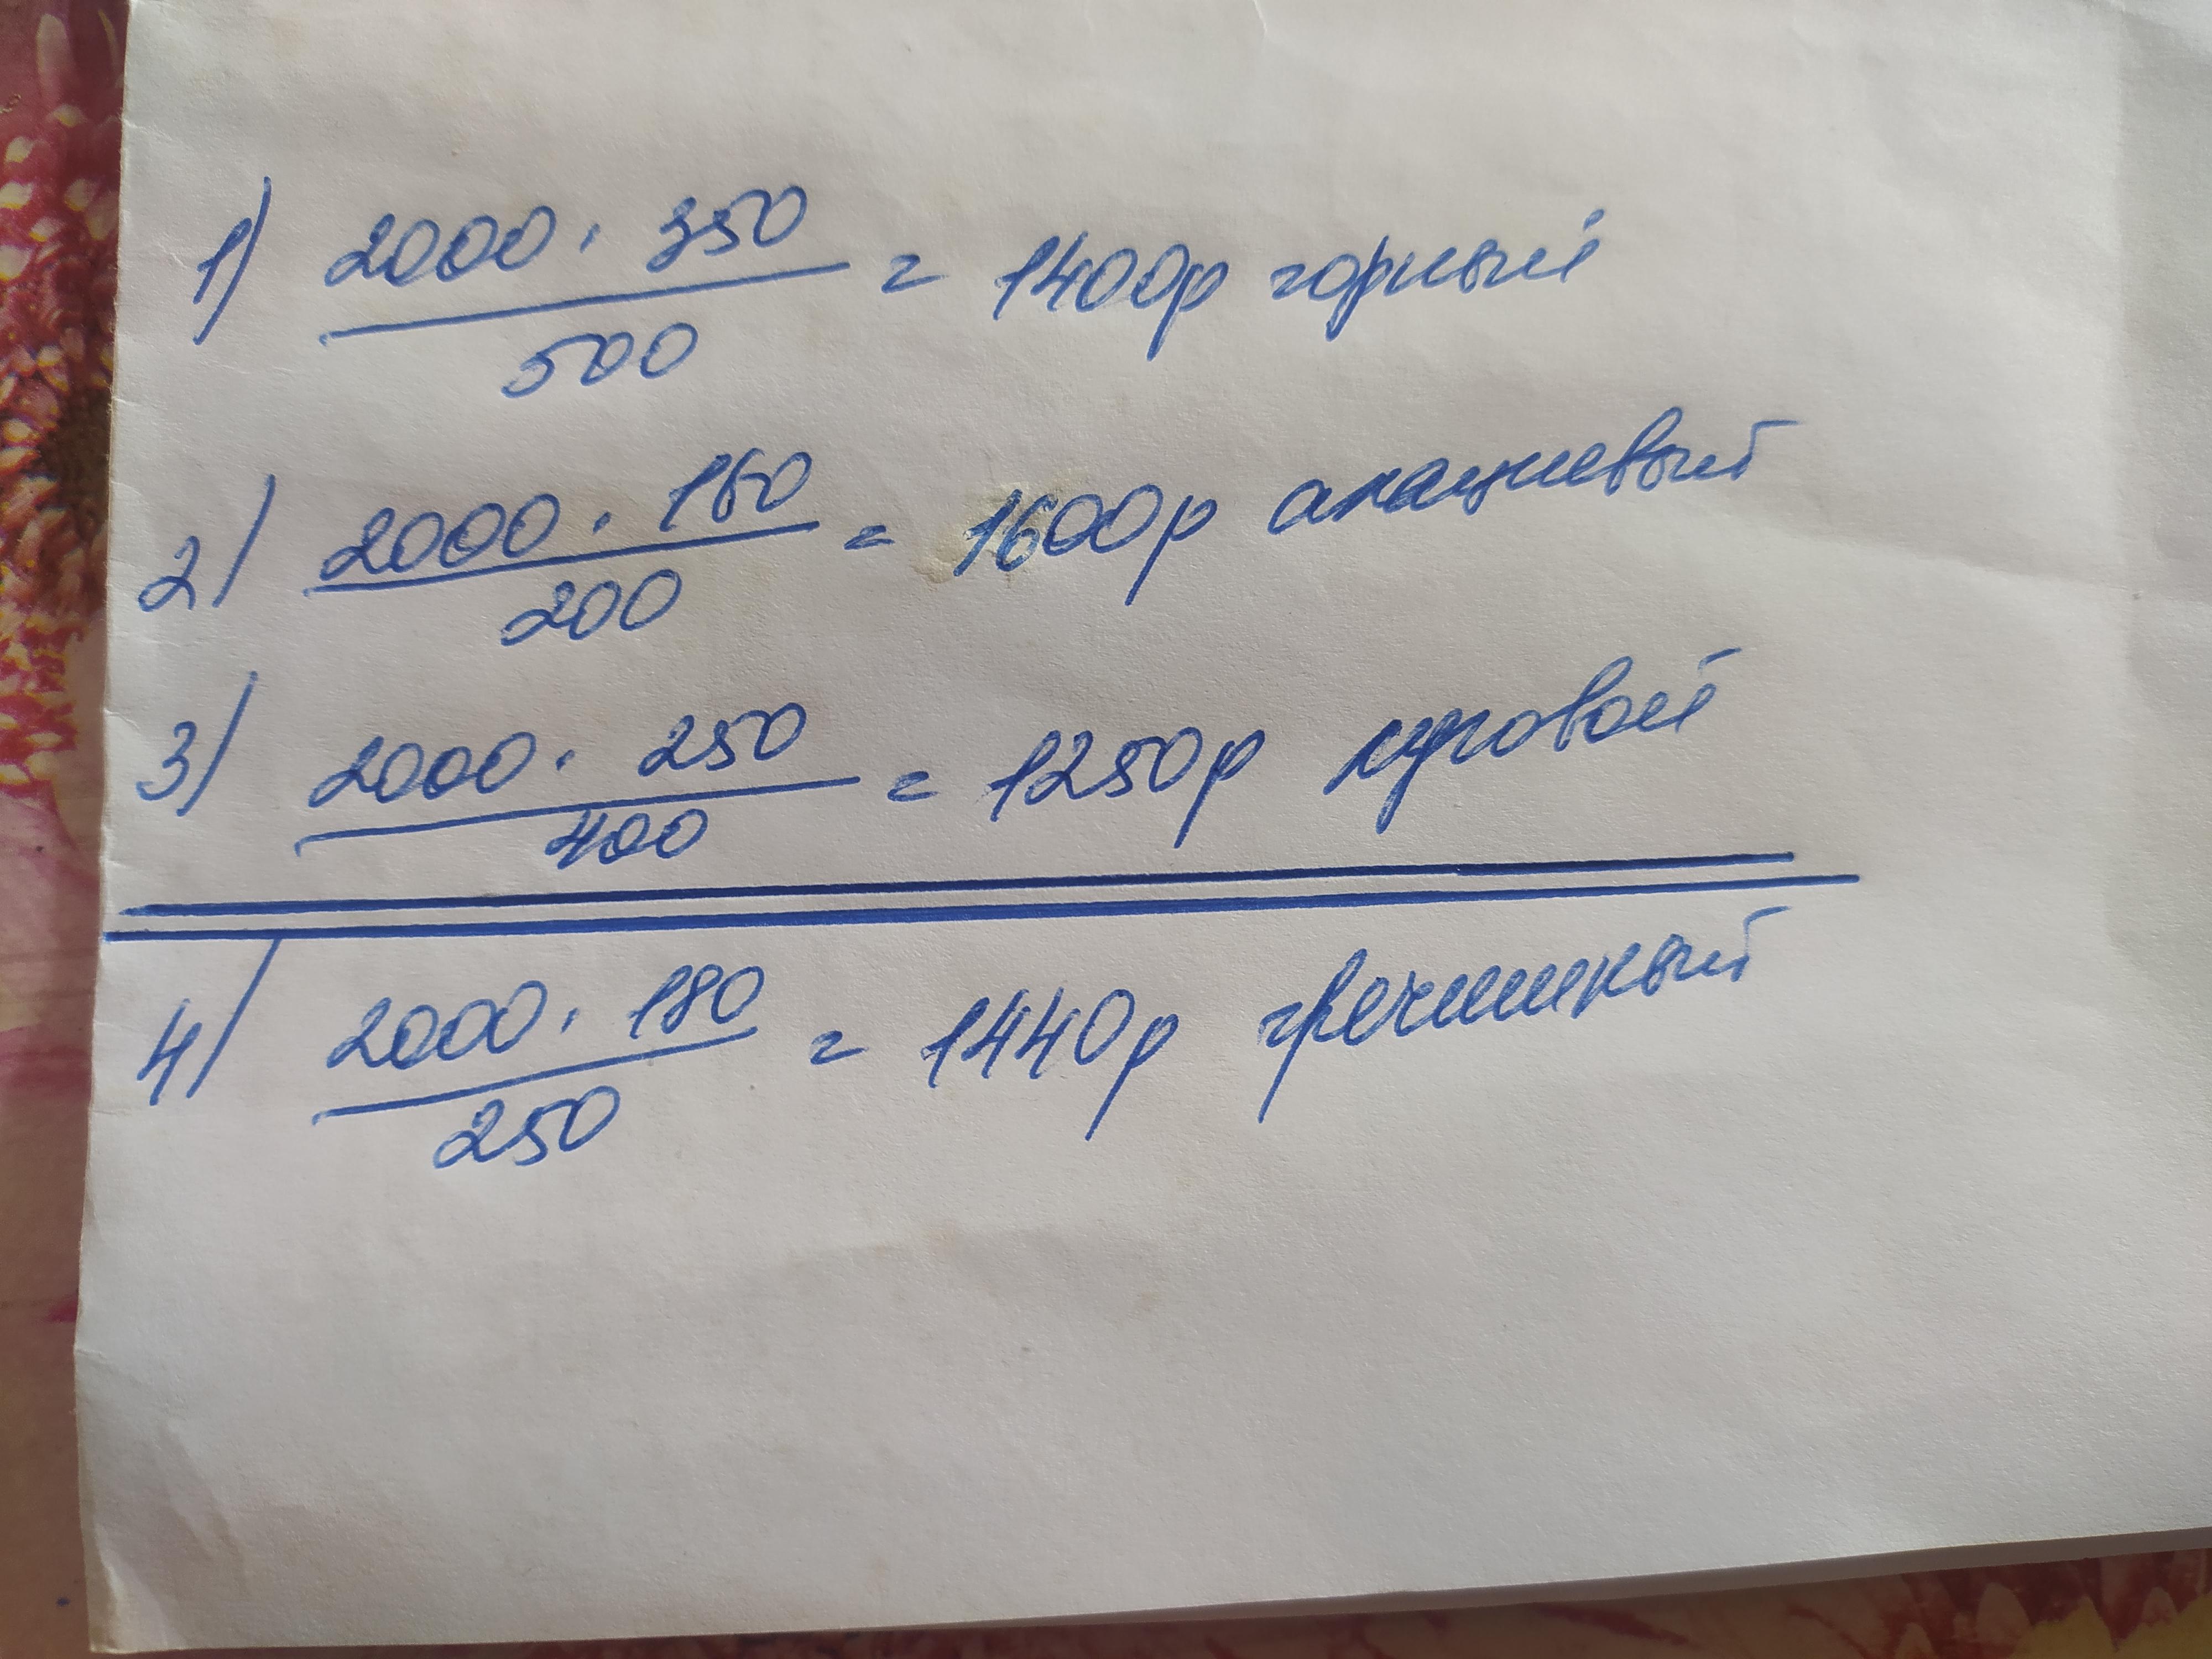 1) 2000 · 350
500
= 1400р горный
2) 2000 · 160
200
= 1600р акациевый
3) 2000 · 250
400
= 1250р луговой
4) 2000 · 180
250
= 1440р гречишный